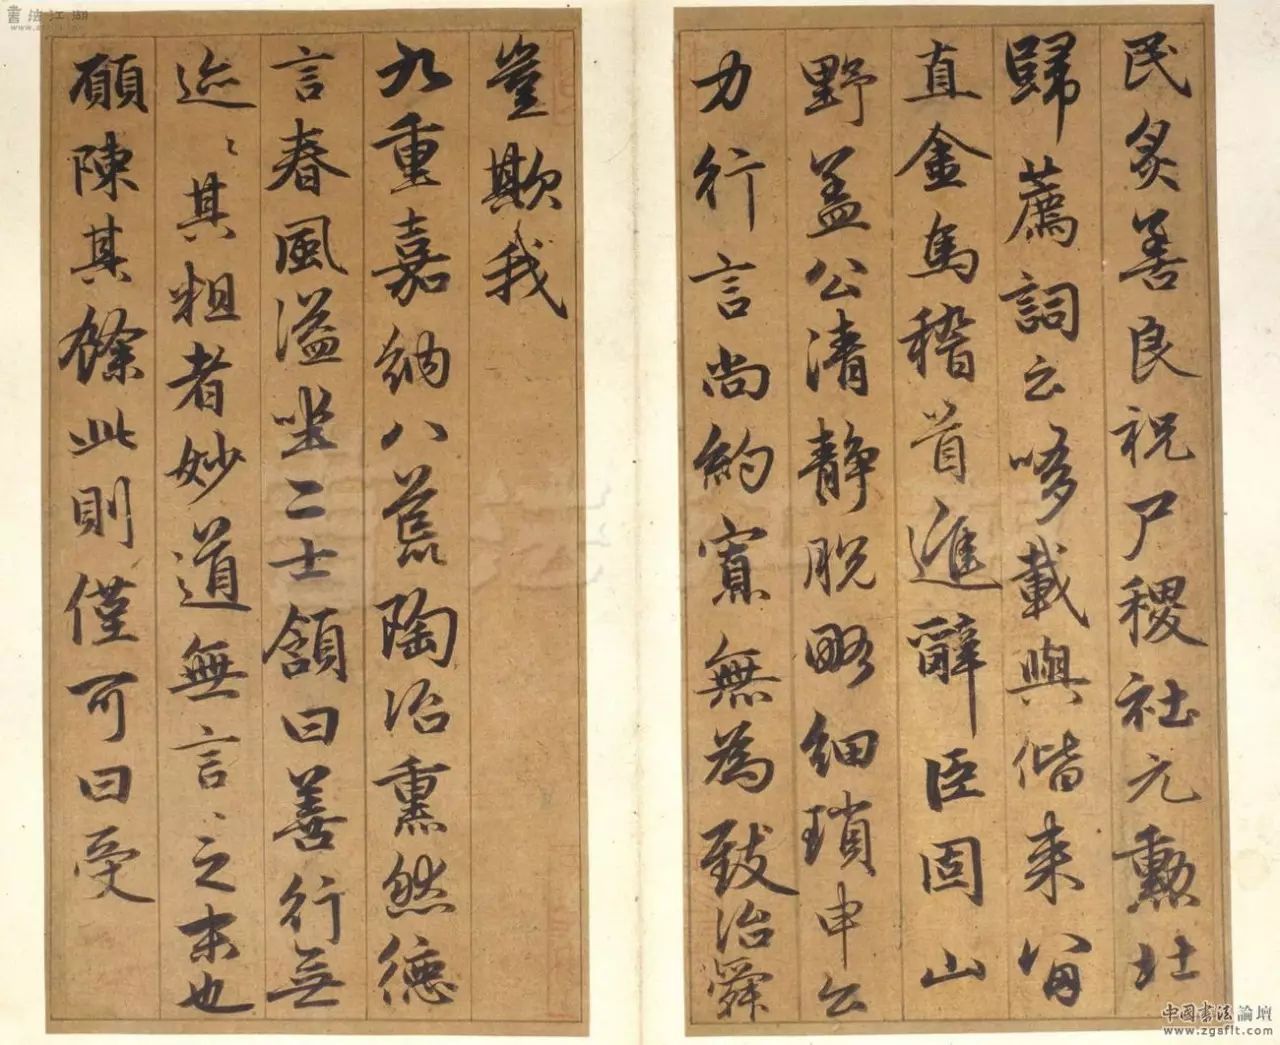 民炙善良祝尸稷社元勳北
歸薦詞云哆載與偕来
直金馬稽首進辭臣固山
野盖公清静脱略細瑣申公
力行言尚約寡無為致治舜
豈欺我
九重嘉納八荒陶冶熏然德
言春風溢坐二士頷曰善行無
迹〻其粗者妙道無言〻之末也
願陳其餘此則僅可曰受
書法江湖
中國書法論壇
www.zgsflt.com